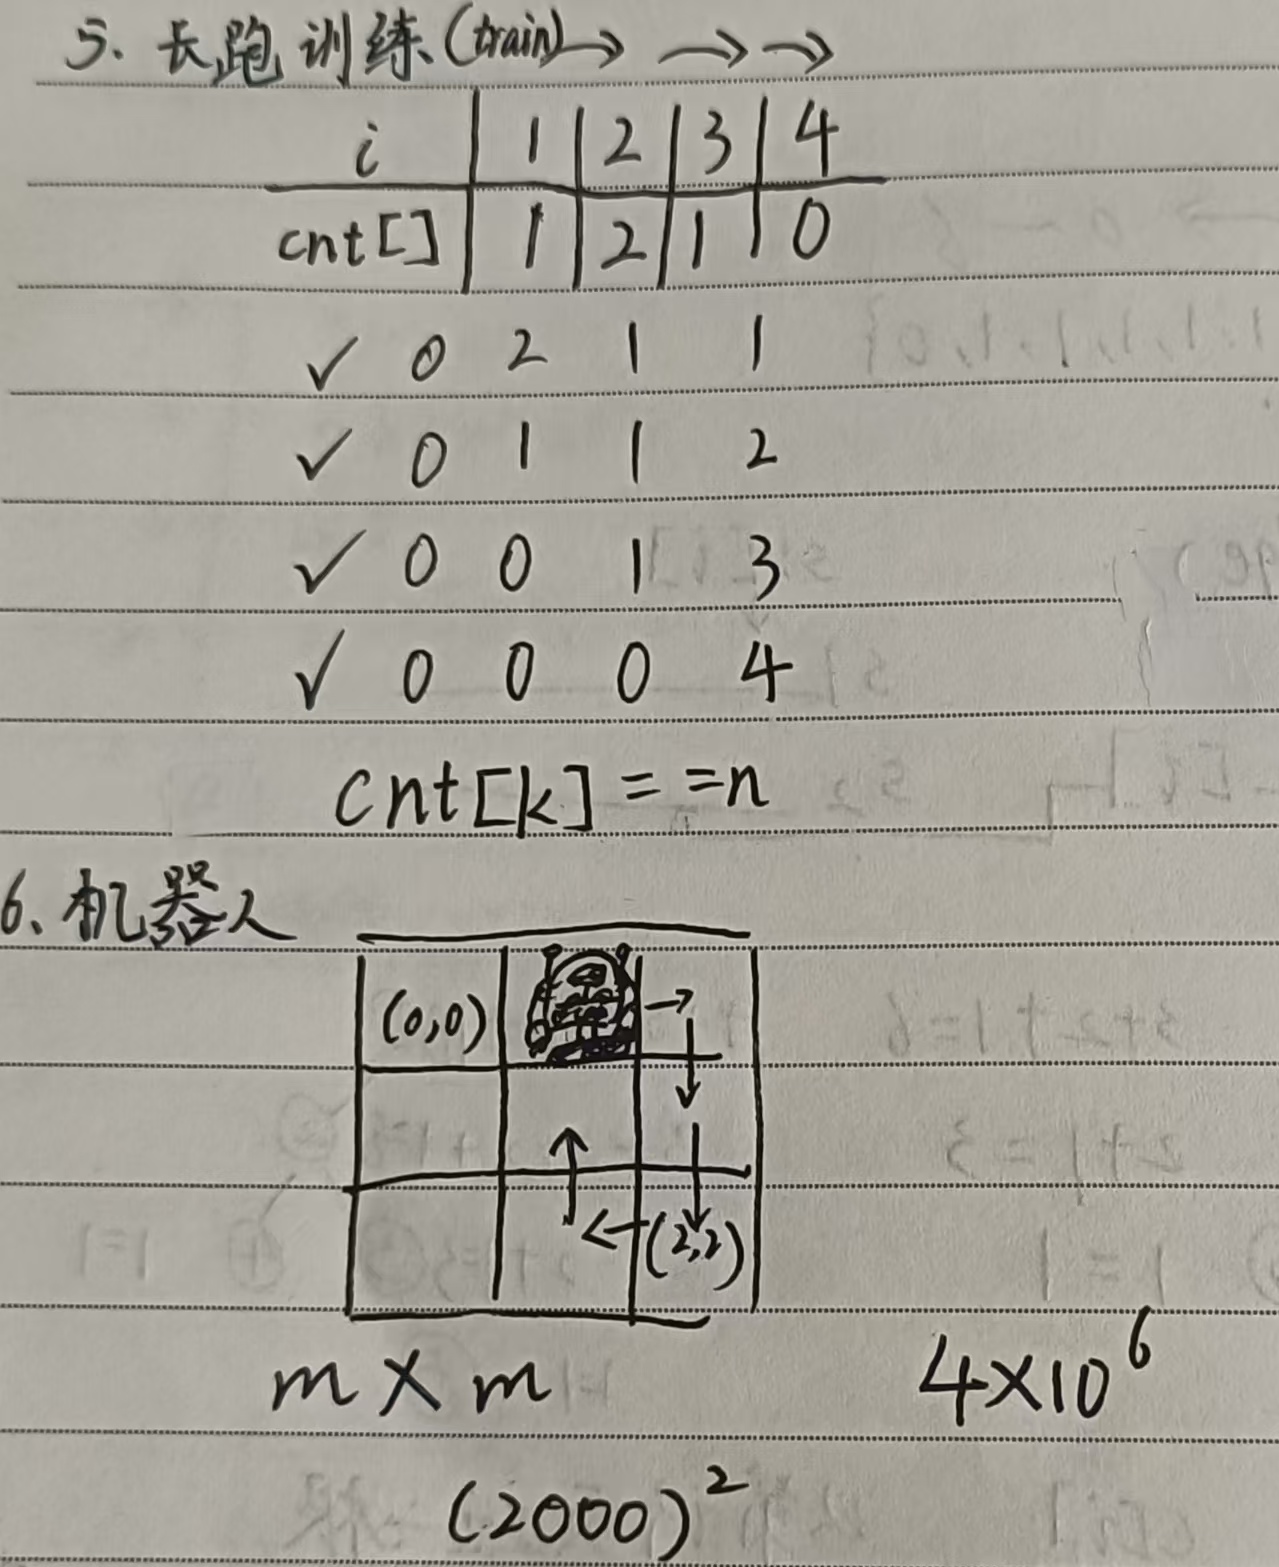 5. 长跑训练(train)→ → →
i | 1 | 2 | 3 | 4
cnt[] | 1 | 2 | 1 | 0
✓ 0 2 1 1
✓ 0 1 1 2
✓ 0 0 1 3
✓ 0 0 0 4
cnt[k]==n
6、机器人
(0,0) →
↓
↑ ↓
← (2,2)
m×m
4×10⁶
(2000)²